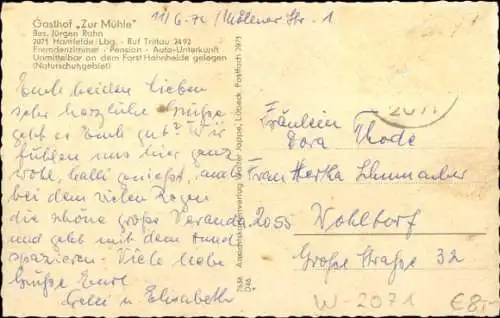 Gasthof „Zur Mühle"
Bes. Jürgen Rahn
2071 Hamfelde/Lbg. - Ruf Trittau 2492
Fremdenzimmer - Pension - Auto-Unterkunft
Unmittelbar an dem Forst Hahnheide gelegen
(Naturschutzgebiet)
11/6.72 / Möllner Str. 1
Euch beiden Lieben
sehr herzliche Grüße
geht es Euch gut? Wir
fühlen uns hier ganz
wohl, Kalli genießt, auch
bei dem vielen Regen
die schöne große Veranda
und geht mit dem Hund
spazieren. Viele liebe
Grüße Eure
u. Elisabeth
7636 Ansichtskartenverlag Jappe, Lübeck, Postfach 2071
D46
2071
Fräulein
Dora Thode
Frau Hertha Schumacher
2055
Wohltorf
Große Straße 32
W-2071
€8,-